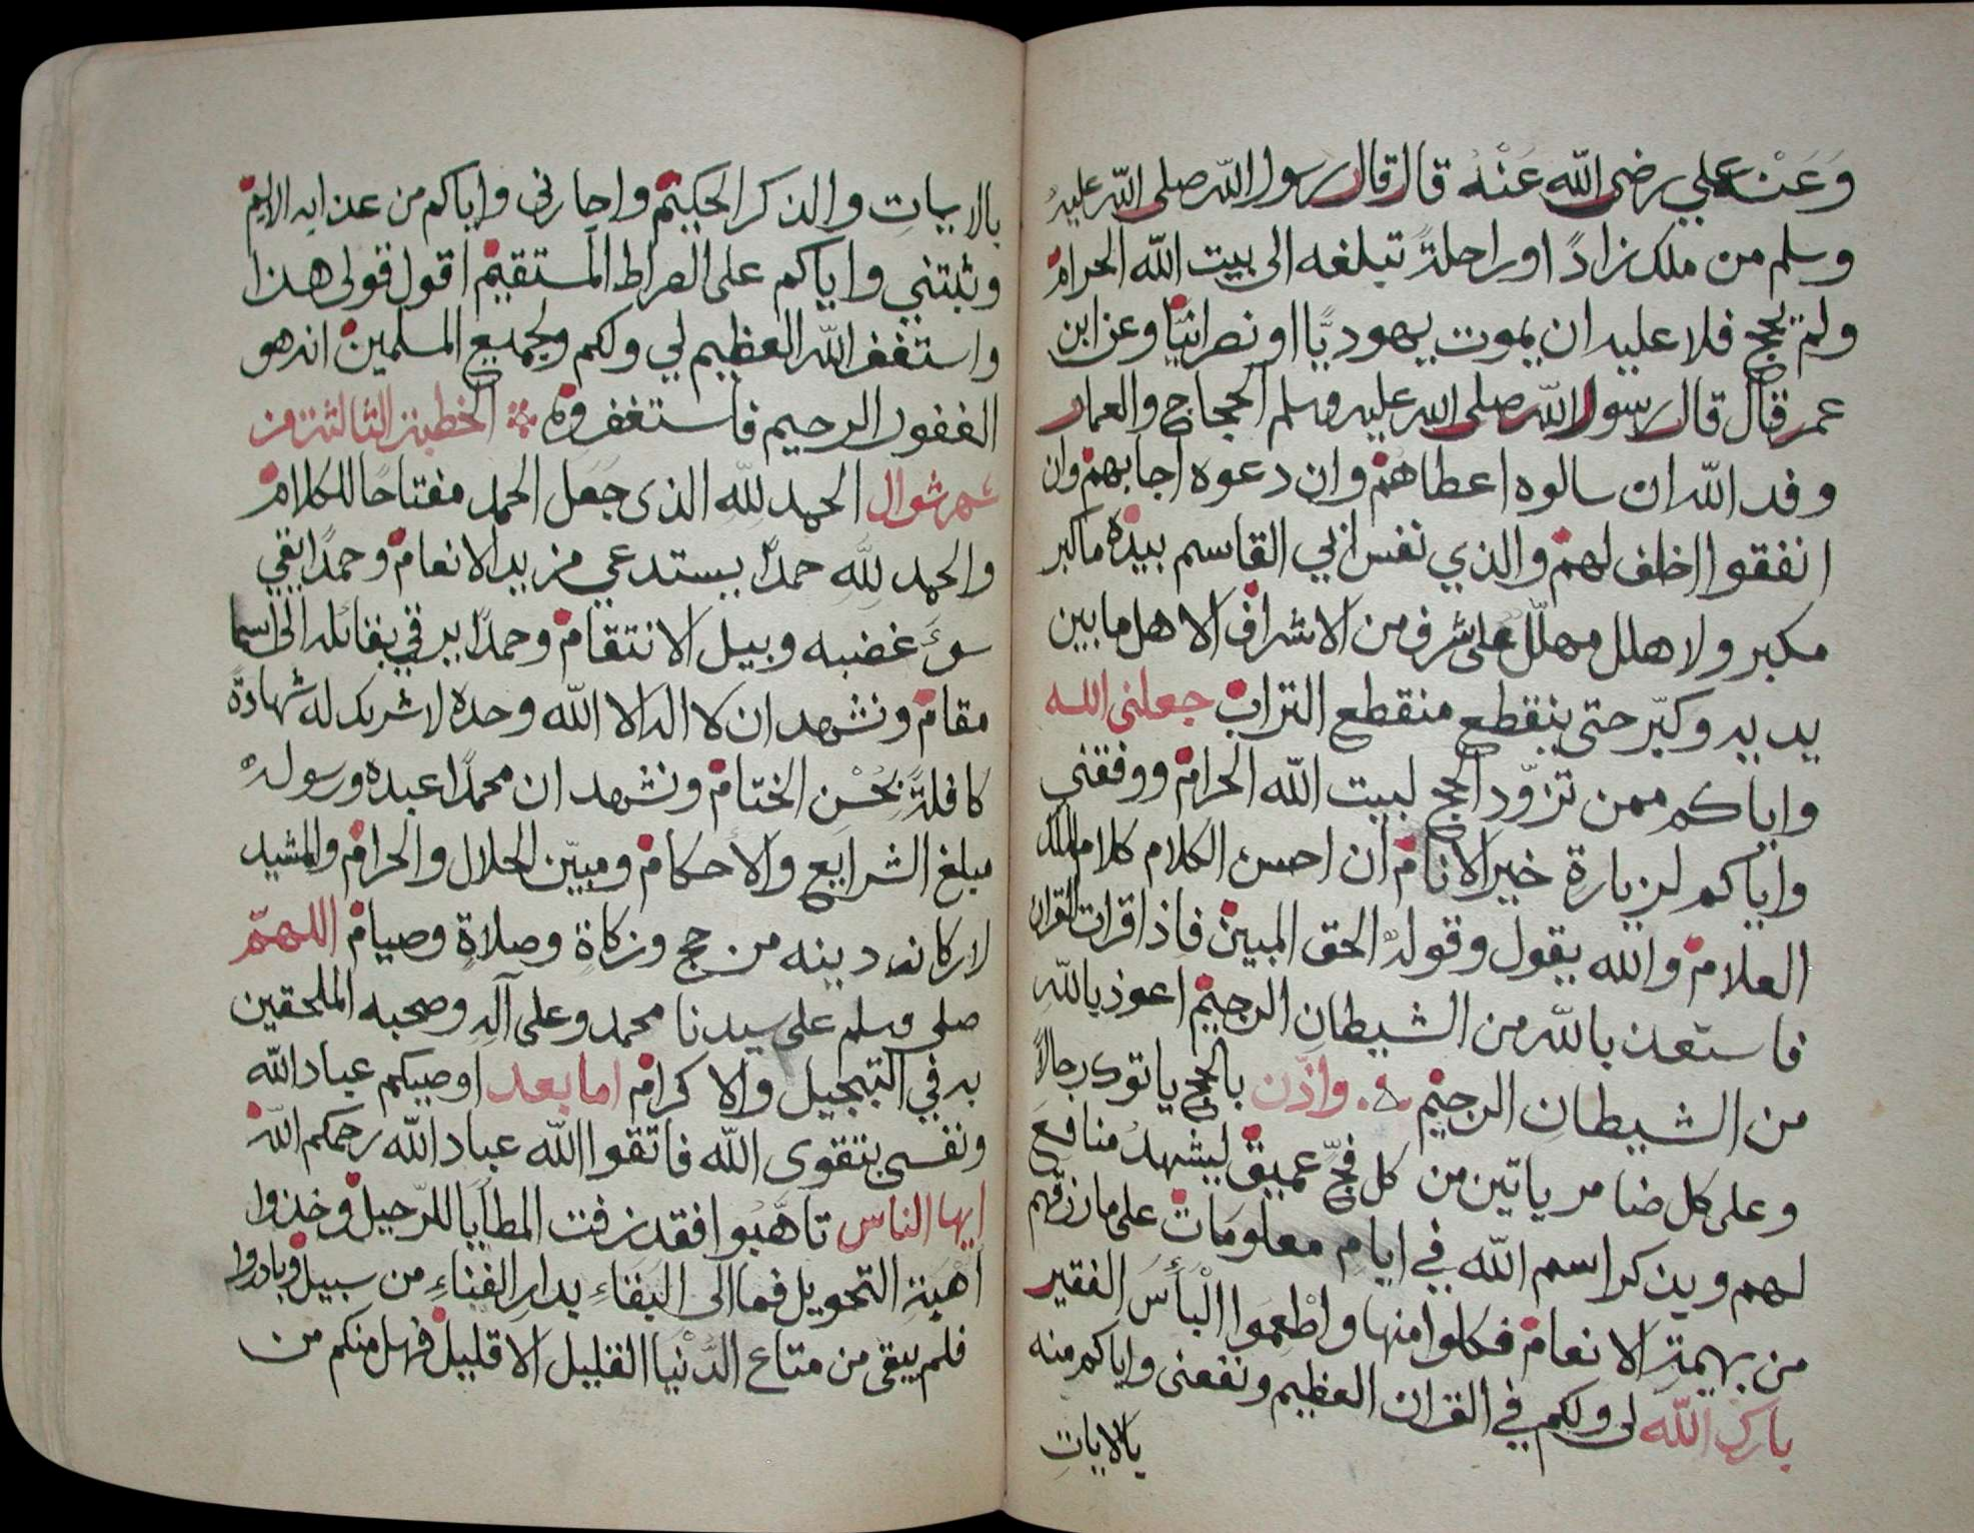 وَعَنْ علي رضى الله عَنْه قال قال رسول الله صلى الله عليه
وسلم من ملك زادً او راحلةً تبلغه الى بيت الله الحرام
ولم يحج فلا عليه ان يموت يهوديًّا او نصرانيًّا وعن ابن
عمر قال قال رسول الله صلى الله عليه وسلم الحجاج والعمار
وفد الله ان سالوه اعطاهُم وان دعوه اجابهم وان
انفقوا اخلف لهم والذي نفس ابي القاسم بيده ماكبر
مكبر ولا هلل مهلّل على شرف من الاشراف الا هل مابين
يديه وكبّر حتى ينقطع منقطع التراب جعلنى الله
واياكم ممن تزوّد الحج لبيت الله الحرام ووفقني
واياكم لزيارة خير الانام ان احسن الكلام كلام الملك
العلام والله يقول وقوله الحق المبين فاذا قرات القران
فاستعذ بالله من الشيطان الرجيم اعوذ بالله
من الشيطان الرجيم واذّن بالحج ياتوك رجالاً
وعلى كل ضامر ياتين من كل فجّ عميق ليشهدُ منافع
لهم ويذكر اسم الله في ايام معلومات على مارزقهم
من بهيمة الانعام فكلوا منها واطعموا الْبأسَ الفقير
بارك الله لى ولكم في القران العظيم ونفعنى واياكم منه
بالايات
بالايات والذكر الحكيم واجارنى واياكم من عذابه الاليم
وثبتني واياكم على الصراط المستقيم اقول قولى هذا
واستغفر الله العظيم لي ولكم ولجميع المسلمين انه هو
الغفور الرحيم فاستغفروه الخطبة الثالثة من
شهر شوال الحمد لله الذى جَعَل الحمد مفتاحًا للكلام
والحمد لله حمدًا يستدعي مزيد الانعام وحمدًا يقي
سوءَ غضبه وبيل الانتقام وحمدًا يرقي بقائله الى اسما
مقام ونشهد ان لا اله الا الله وحده لا شريك له شهادةً
كافلةً بحُسْنِ الختام ونشهد ان محمدًا عبده ورسوله
مبلغ الشرايع والأحكام ومبيّن الحلال والحرام والمشيد
لاركان دينه من حج وزكاة وصلاةٍ وصيام اللهمّ
صلى وسلم على سيدنا محمد وعلى آله وصحبه الملحقين
به في التبجيل والاكرام اما بعد اوصيكم عباد الله
ونفسى بتقوى الله فاتقوا الله عباد الله رحمكم الله
ايها الناس تاهّبُوا فقد زفت المطايا للرّحيل وخذوا
اهبة التحويل فما الى البقاءِ بدارِ الفناءِ من سبيل وبادروا
فلم يبقى من متاع الدُّنْيا القليل الا قليل فهل منكم من